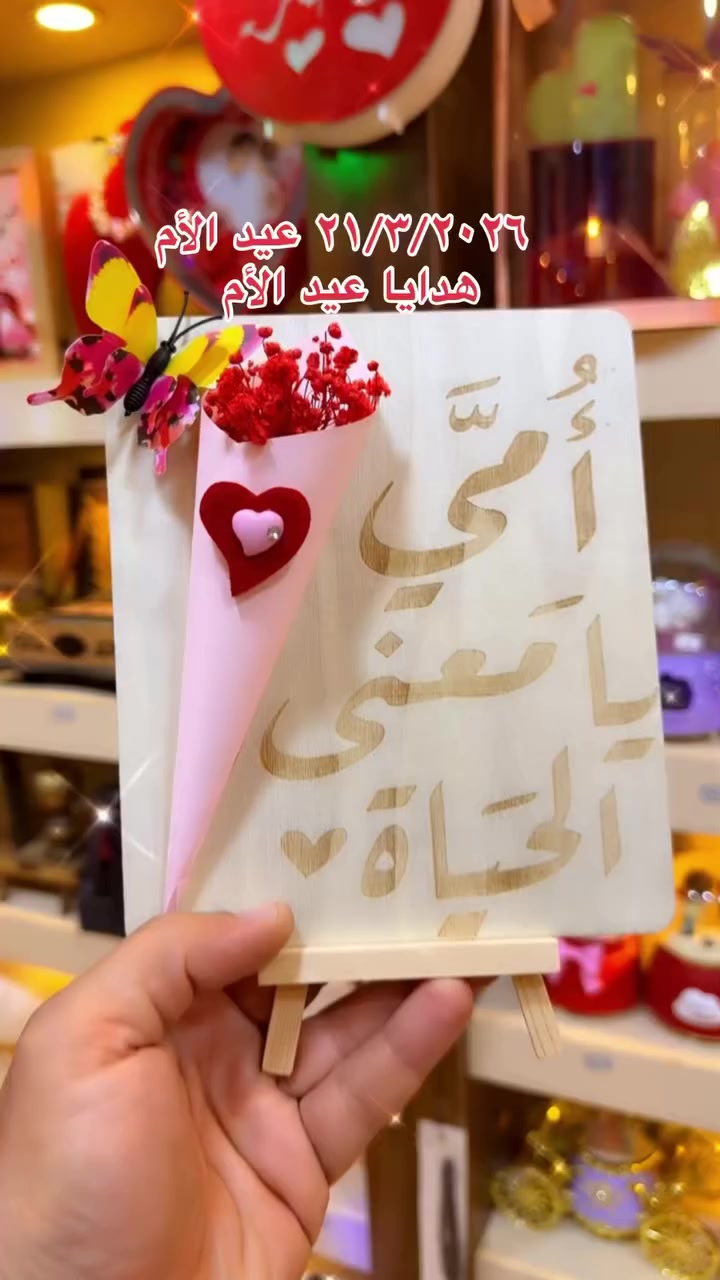 ٢١/٣/٢٠٢٦ عيد الأم
هدايا عيد الأم
أُمّي
يا مَعنى
الحَياة